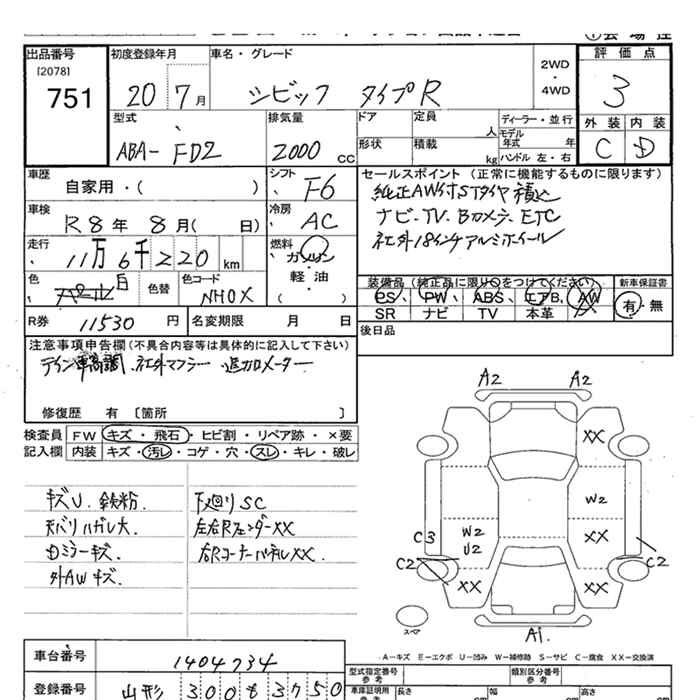 出品番号 初度登録年月 車名・グレード 2WD・4WD 評価点
[2078]
751 20 7月 シビック タイプR 3
型式 排気量 ドア 定員 人 ディーラー・並行 外装 内装
ABA- FD2 2000 CC 形状 積載 kg モデル年式 年 ハンドル 左・右 C D
車歴 自家用・( ) シフト F6 セールスポイント (正常に機能するものに限ります)
車検 R8年 8月( 日) 冷房 AC 純正AW付STタイヤ積込
ナビ・TV. Bカメラ ETC
走行 11万6千220km 燃料 ガソリン・軽油・( ) 社外18インチアルミホイール
色 色替 色コード NHOX 装備品 (純正品に限り○をつけてください) 新車保証書
PS、PW、ABS、エアB、AW 有・無
SR ナビ TV 本革
R券 11530円 名変期限 月 日 後日品
注意事項申告欄(不具合内容等は具体的に記入して下さい)
テイン車高調. 社外マフラー 追加メーター
修復歴 有 [箇所 ]
検査員 FW キズ・飛石・ヒビ割・リペア跡・×要
記入欄 内装 キズ・汚レ・コゲ・穴・スレ・キレ・破レ
キズU. 鉄粉. 下廻りSC
天バリハガレ大. 左右RフェンダーXX
ドミラーキズ. 右RコーナーパネルXX.
外AWキズ.
A2 A2
XX
W2
C3 W2 U2 XX
C2 C2
XX XX
スペア A1.
A−キズ E−エクボ U−凹み W−補修跡 S−サビ C−腐食 XX−交換済
車台番号 1404734 型式指定番号 参考 類別区分番号 参考
登録番号 山形 300 も 3750 車庫証明用 参考 長さ cm 幅 cm 高さ cm